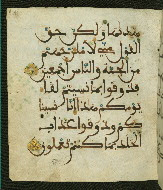 هديها ولكن حق
القول مني لأملأن جهنم
من الجنة والناس أجمعين
فذوقوا بما نسيتم لقاء
يومكم هذا إنا نسينا
كم وذوقوا عذاب
الخلد بما كنتم تعملون